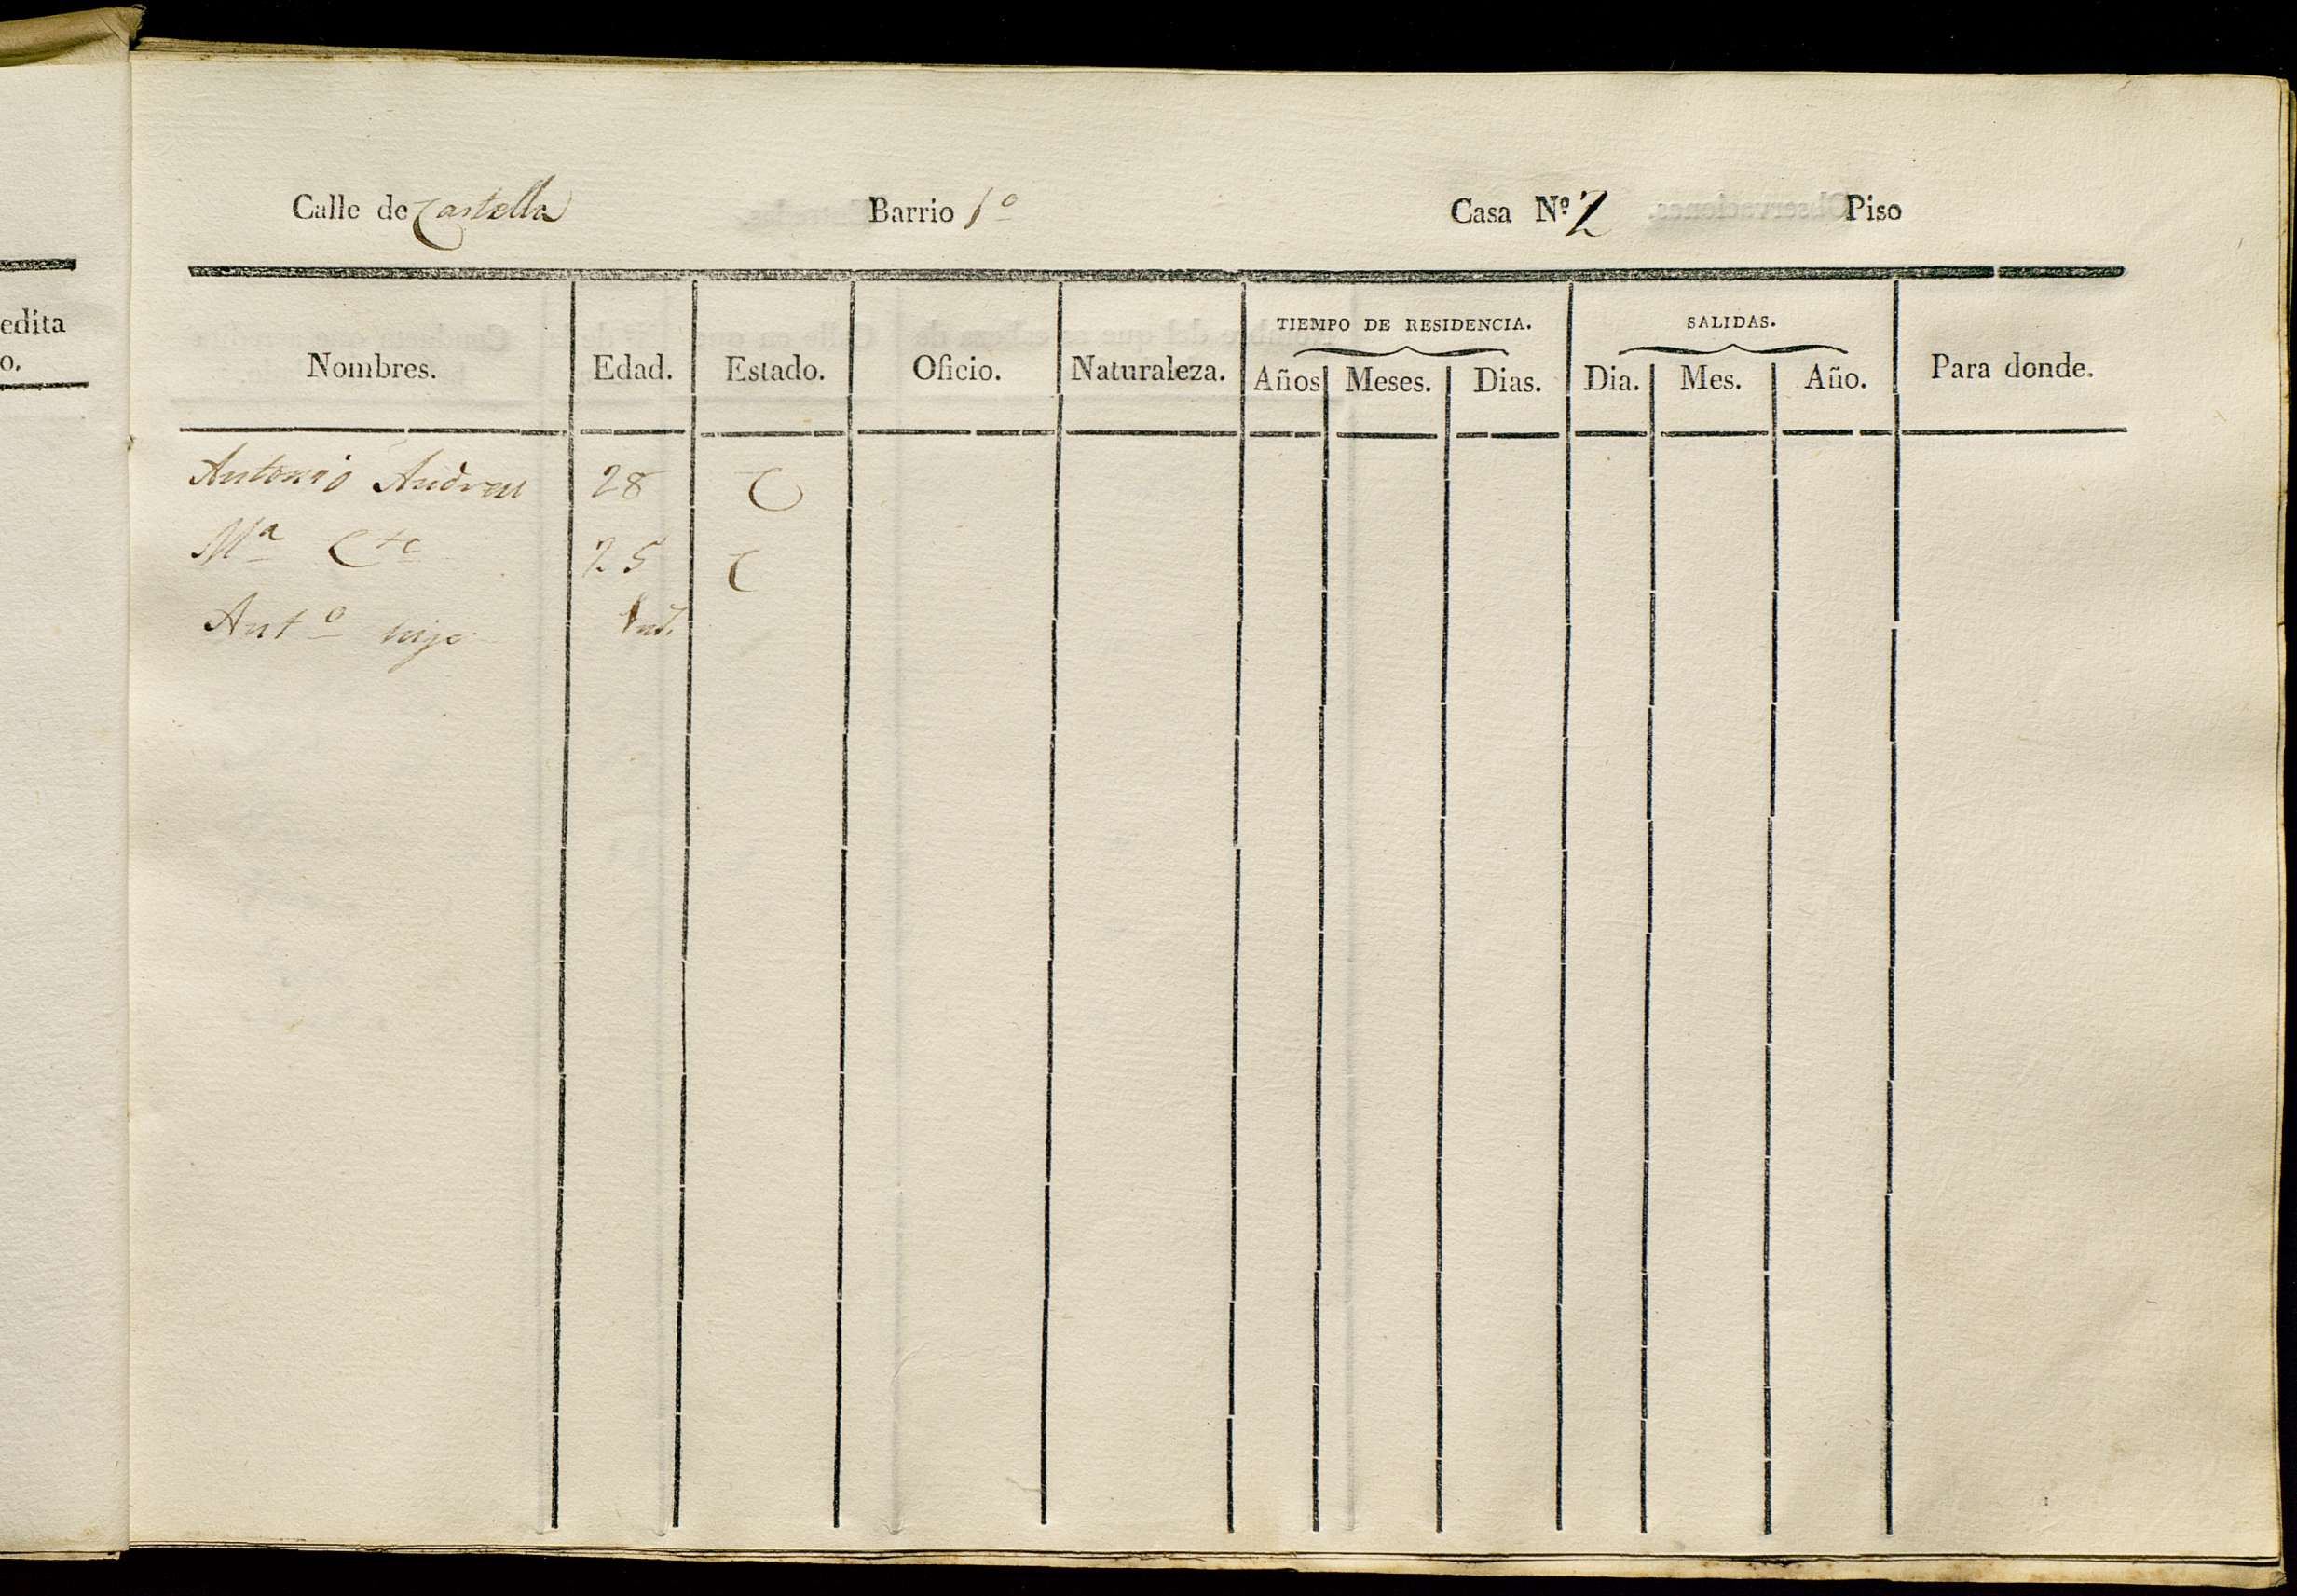 Calle de Castella Barrio 1º Casa Nº 2 Piso
edita
o.
Nombres. Edad. Estado. Oficio. Naturaleza. TIEMPO DE RESIDENCIA. SALIDAS. Para donde.
Años Meses. Dias. Dia. Mes. Año.
Antonio Andreu 28 C
Mª 25 C
Antº hijo